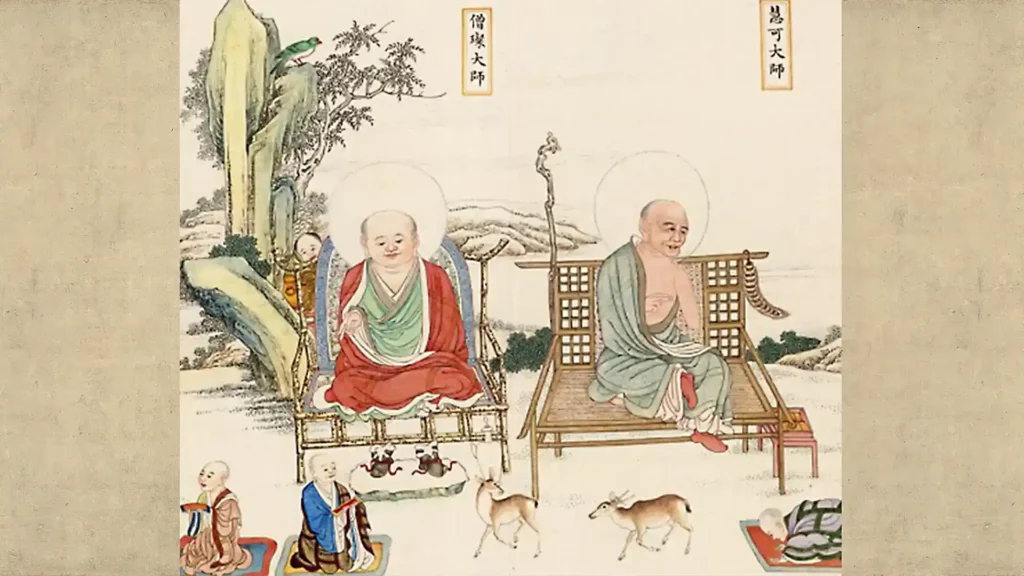 慧可大師
僧璨大師